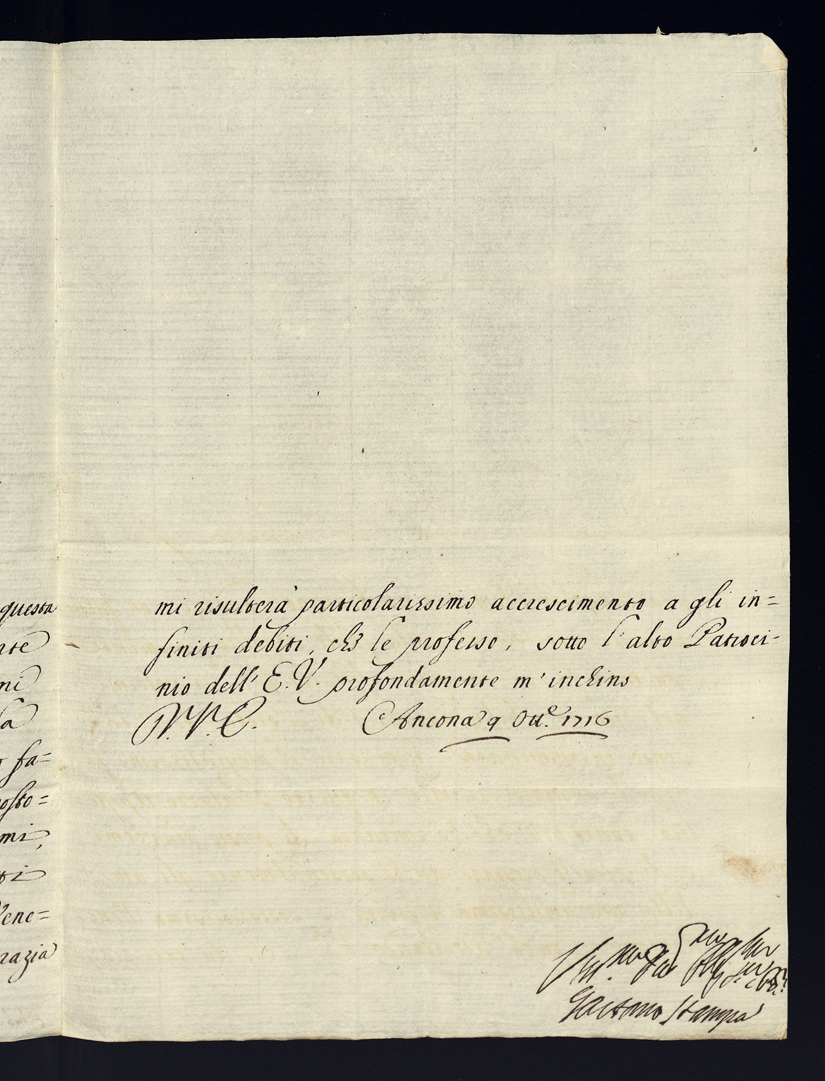 questa
nte
mi
la
fa=
osto=
mi,
ti
Vene=
razia
mi risulterà particolarissimo accrescimento a gli in=
finiti debiti, che le professo, sotto l'alto Patroci-
nio dell'E.V. profondamente m'inchino
Ancona 9 Ott.e 1716
Gaetano Stampa